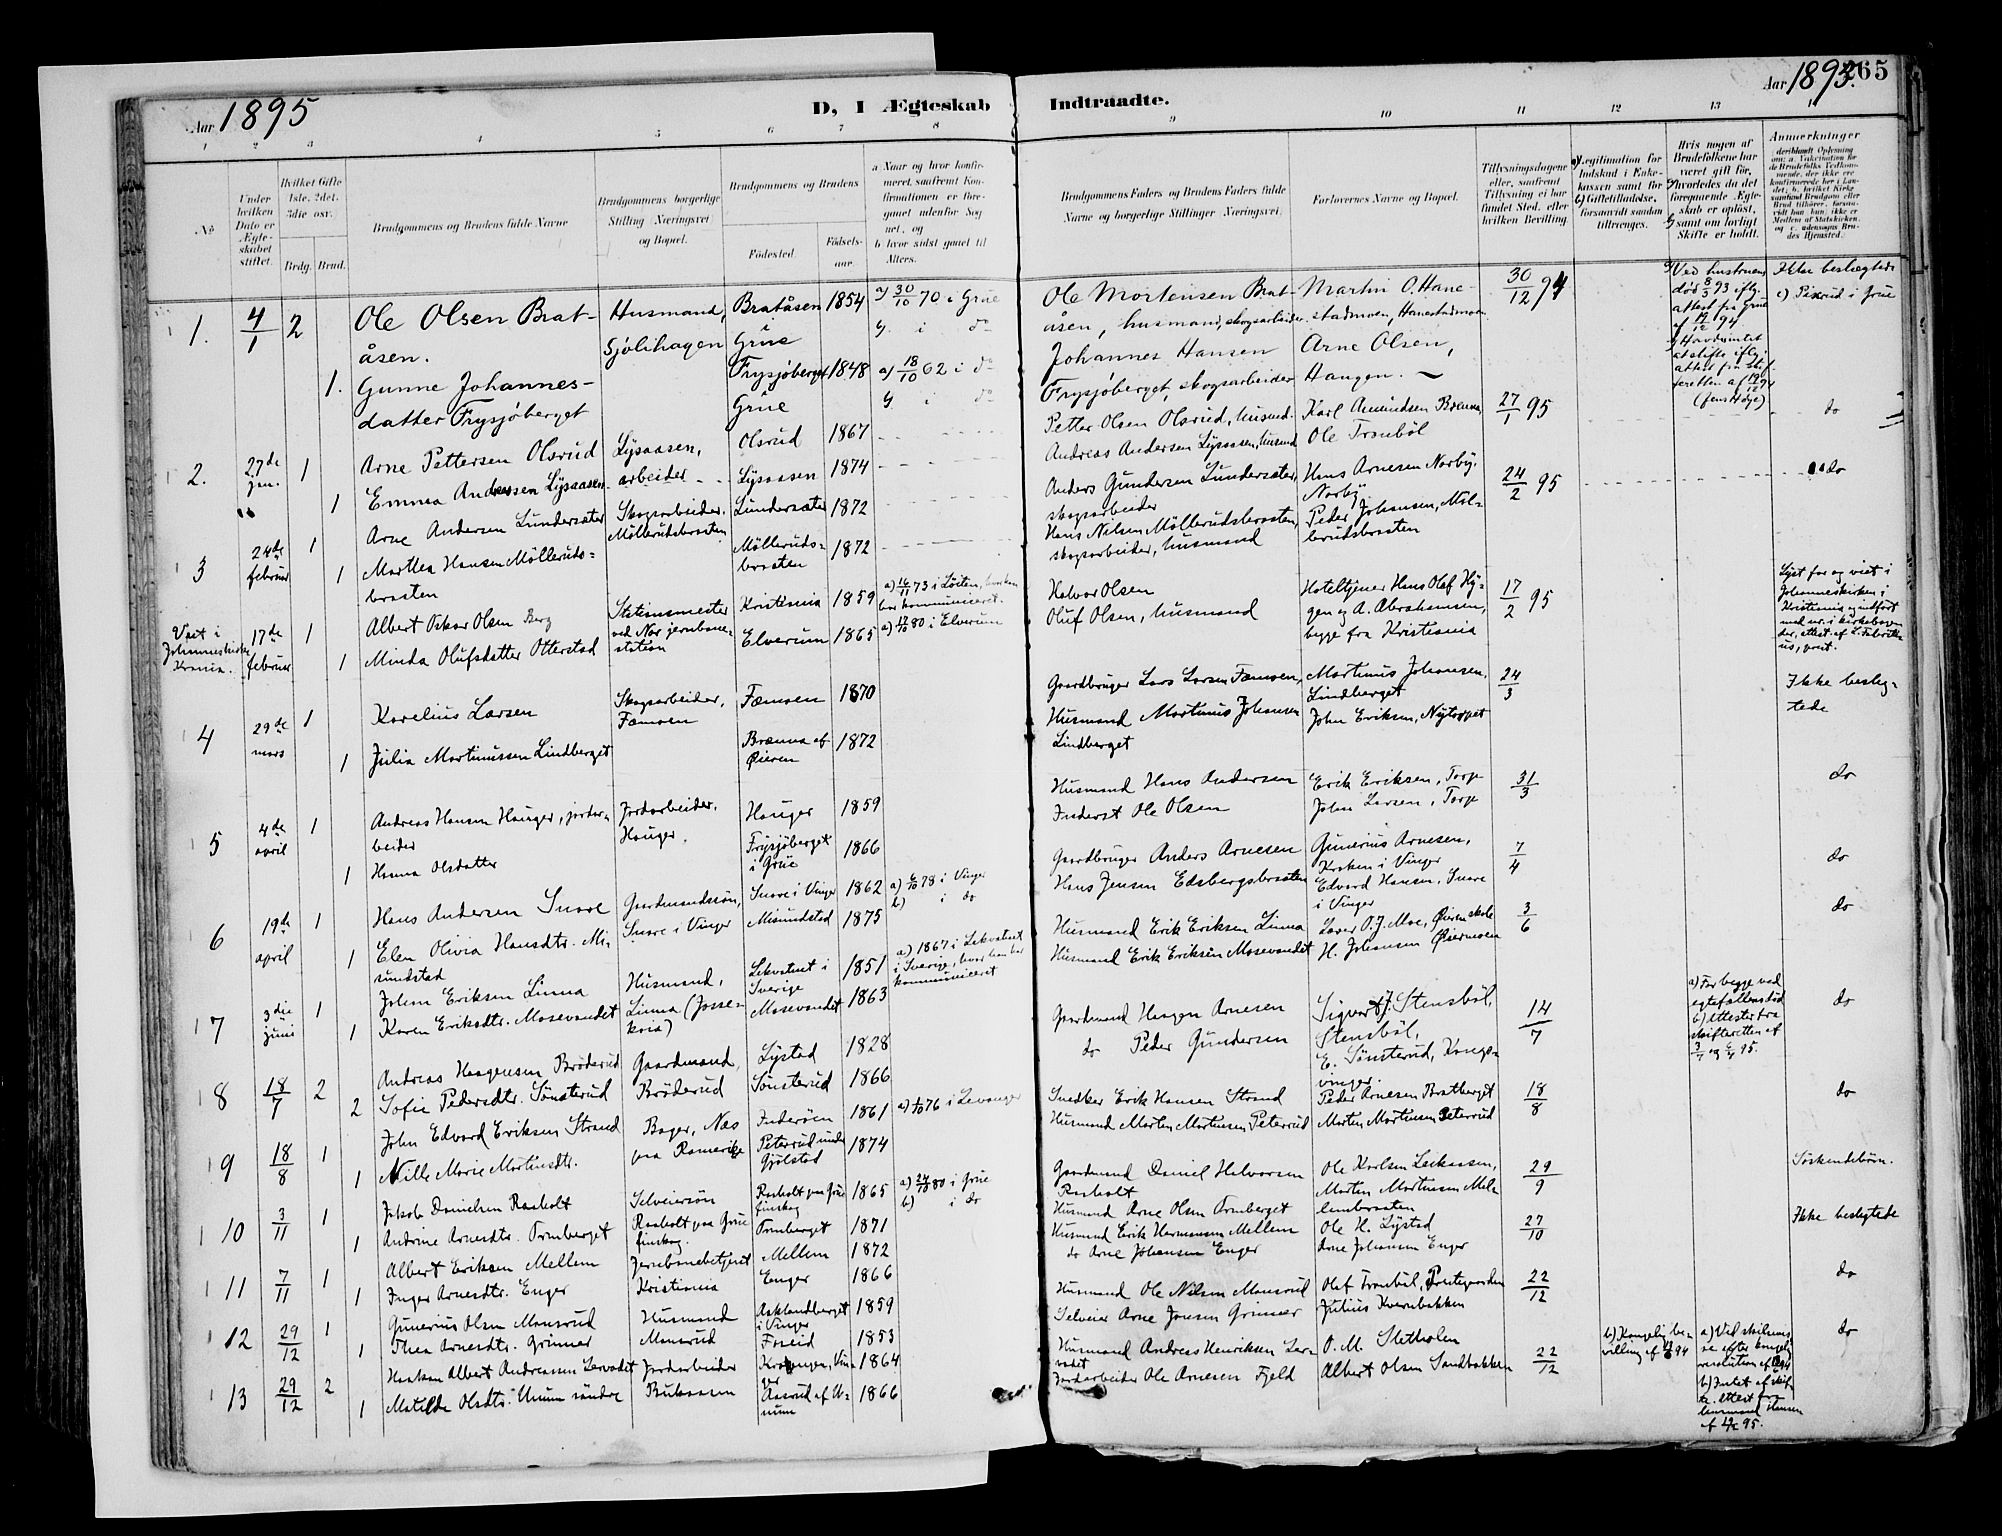 Aar 1895
D, I Ægteskab Indtraadte.
Aar 1895. 265
1 2 3 4 5 6 7 8 9 10 11 12 13
No
Under hvilken Dato er Ægteskabet stiftet.
Hvilket Gifte 1ste, 2det, 3die osv.
Brdg. Brud.
Brudgommens og Brudens fulde Navne
Brudgommens borgerlige Stilling (Næringsvei) og Bopæl.
Brudgommens og Brudens
Födested. Födselsaar.
a Naar og hvor konfirmeret, saafremt Konfirmationen er foregaaet udenfor Sognet, og
b hvor sidst gaaet til Alters.
Brudgommens Faders og Brudens Faders fulde Navne og borgerlige Stillinger (Næringsvei).
Forlovernes Navne og Bopæl.
Tillysningsdagene eller, saafremt Tillysning ei har fundet Sted, efter hvilken Bevilling.
a) Legitimation for Indskud i Enkekassen samt for b) Giftetilladelse, forsaavidt saadan tiltrænges.
Hvis nogen af Brudefolkene har været gift før, hvorledes da det foregaaende Ægteskab er opløst, samt om lovligt Skifte er holdt.
Anmærkninger
1. 4/1 2 Ole Olsen Bratåsen. Husmand, Sjölihagen Bratåsen Grue 1854 a) 30/10 70 i Grue b. i do
Ole Mortensen Bratåsen, husmand, skogsarbeider. Martin O. Hanestadmoen, Hanestadmoen 30/12 94
a) Ved hustruens död 8/3 93 iflg. attest fra Grue af 19/12 94
Ikke beslægtede
c) Pikerud i Grue
1. Gunne Johannesdatter Frysjöberget Frysjöberget Grue 1848 a) 18/10 62 i do b. i do
Johannes Hansen Frysjöberget, skogsarbeider Arne Olsen, Haugen.
2. 27de jan. 1 Arne Pettersen Olsrud Lysaasen, arbeider Olsrud 1867
Petter Olsen Olsrud, husmd. Karl Amundsen Brenna, 27/1 95 do
1 Emma Andressen Lysaasen Lysaasen 1874
Andreas Andersen Lysaasen, husmd Ole Tronböl
3 24de februar 1 Arne Andersen Lundersæter Skogsarbeider, Möllerudsbraaten Lundersæter 1872
Anders Gundersen Lundersæter, skogsarbeider Hans Arnesen Norby, Norby 24/2 95 do
1 Marthea Hansen Möllerudsbraaten Möllerudsbraaten 1872
Hans Nilsen Möllerudsbraaten, skogsarbeider, husmand Peder Johansen, Möllerudsbraaten
Viet i Johanneskirke Krania. 17de februar 1 Albert Oskar Olsen Berg Stationsmester ved Nor jernbanestation Kristiania 1859 a) 16/11 73 i Løiten, hvor han har kommuniceret.
Halvor Olsen Hoteltjener Hans Olaf Hygen og A. Abrahamsen, begge fra Kristiania 17/2 95
Lyst for og viet i Johanneskirken i Kristiania og indført
1 Minda Olufsdatter Otterstad Elverum 1865 a) 17/10 80 i Elverum
Oluf Olsen, husmand
4 29de mars 1 Karelius Larsen Skogsarbeider, Fæmoen Fæmoen 1870
Gaardbruger Lars Larsen Fæmoen, Martinus Johansen, Lindberget 24/3 Ikke beslegtede
1 Julia Martinussen Lindberget Brænna af Øieren 1872
Husmand Martinus Johansen Lindberget John Eriksen, Nytorpet
5 4de april 1 Andreas Hansen Hauger, jordarbeider Jordarbeider, Hauger. Hauger 1859
Husmand Hans Andersen Erik Eriksen, Torp 31/3 do
1 Hanna Olsdatter Frysjöberget i Grue 1866
Inderst Ole Olsen John Larsen, Torp
6 19de april 1 Hans Andersen Snare Gaardmandssön, Snare i Vinger Snare i Vinger 1862 a) 6/10 78 i Vinger b) i do
Gaardbruger Anders Arnesen Gunerius Arnesen, Kroken i Vinger 7/4 do
1 Elen Olivia Hansdtr. Misundstad Misundstad 1875
Hans Jensen Edsbergsbraaten Edvard Hansen, Snare i Vinger
7 3die juni 1 Johan Eriksen Linna Husmand, Linna Lekvatnet i Sverige 1851 a) 1867 i Lekvatnet i Sverige, hvor han har kommuniceret
Husmand Erik Eriksen Linna Lærer O. J. Moe, Øieren skole 3/6 do
1 Karen Eriksdtr. Mosevandet Mosevandet 1863
Husmand Erik Eriksen Mosevandet H. Johansen Øiermoen
8 18/7 2 Andreas Haagensen Bröderud Gaardmand, Bröderud Lystad 1828
Gaardmand Haagen Arnesen Sigvart J. Stensböl, Stensböl, 14/7
a) For begge ved egtefællens död b) Attester fra skifteretten do
2 Sofie Pedersdtr. Sönsterud Sönsterud 1866
do Peder Gundersen E. Sönsterud, Kongsvinger.
9 18/8 1 John Edvard Eriksen Strand Bager, Næs paa Romerike Inderöen 1861 a) 1/10 76 i Levanger
Snedker Erik Hansen Strand Peder Arnesen Bratberget 18/8 do
1 Nille Marie Mortensdtr. Peterrud under Gjölstad 1874
Husmand Morten Mortensen Peterrud Morten Mortensen Peterrud
10 3/11 1 Jakob Danielsen Rasholt Selveiersön Rasholt paa Grue finskog. Rasholt paa Grue finskog 1865 a) 24/10 80 i Grue b) i do
Gaardmand Daniel Halvorsen Rasholt Ole Karlsen Leikaasen, 29/9 Söskendebörn.
1 Andrine Arnesdtr. Tornberget Tornberget 1871
Husmand Arne Olsen Tornberget Morten Mortensen Mellembraaten
11 7/11 1 Albert Eriksen Mellem Jernbanebetjent Kristiania Mellem 1872
Husmand Erik Hermansen Mellem Ole H. Lystad 27/10 Ikke beslegtede
1 Inger Arnesdtr. Enger Enger 1866
do Arne Johansen Enger Arne Johansen Enger
12 29/12 1 Gunerius Olsen Monsrud Husmand Monsrud Asklandberget i Vinger 1859
Husmand Ole Nilsen Monsrud Olaf Tronböl, Prestegaarden 22/12 do
1 Thea Arnesdtr. Grinner Foseid 1853
Selveier Arne Jonsen Grinner Julius Kvernbakken
13 29/12 2 Haakon Albert Andreassen Lervadet Jordarbeider Bulaasen Vinger 1864
Husmand Andreas Henriksen Lervadet O. M. Sletholen 22/12
b) Kongelig bevilling af 94
a) Ved skilsmisse efter kongelig resolution do
1 Matilde Olsdtr. Unum söndre Aasrud af Unum 1866
Jordarbeider Ole Arnesen Fjeld Albert Olsen Sandbakken